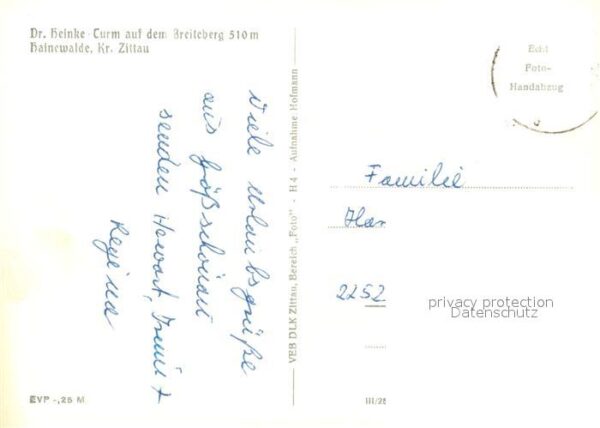 Dr. Heinke-Turm auf dem Breiteberg 510 m
Hainewalde, Kr. Zittau
Viele Urlaubsgrüße
aus Großschönau
senden Horst, Irmi +
Regina
VEB DLK Zittau, Bereich „Foto" - H 4 - Aufnahme Hofmann
EVP -,25 M
Echt
Foto-
Handabzug
Familie
Har
2252
privacy protection
Datenschutz
III/26